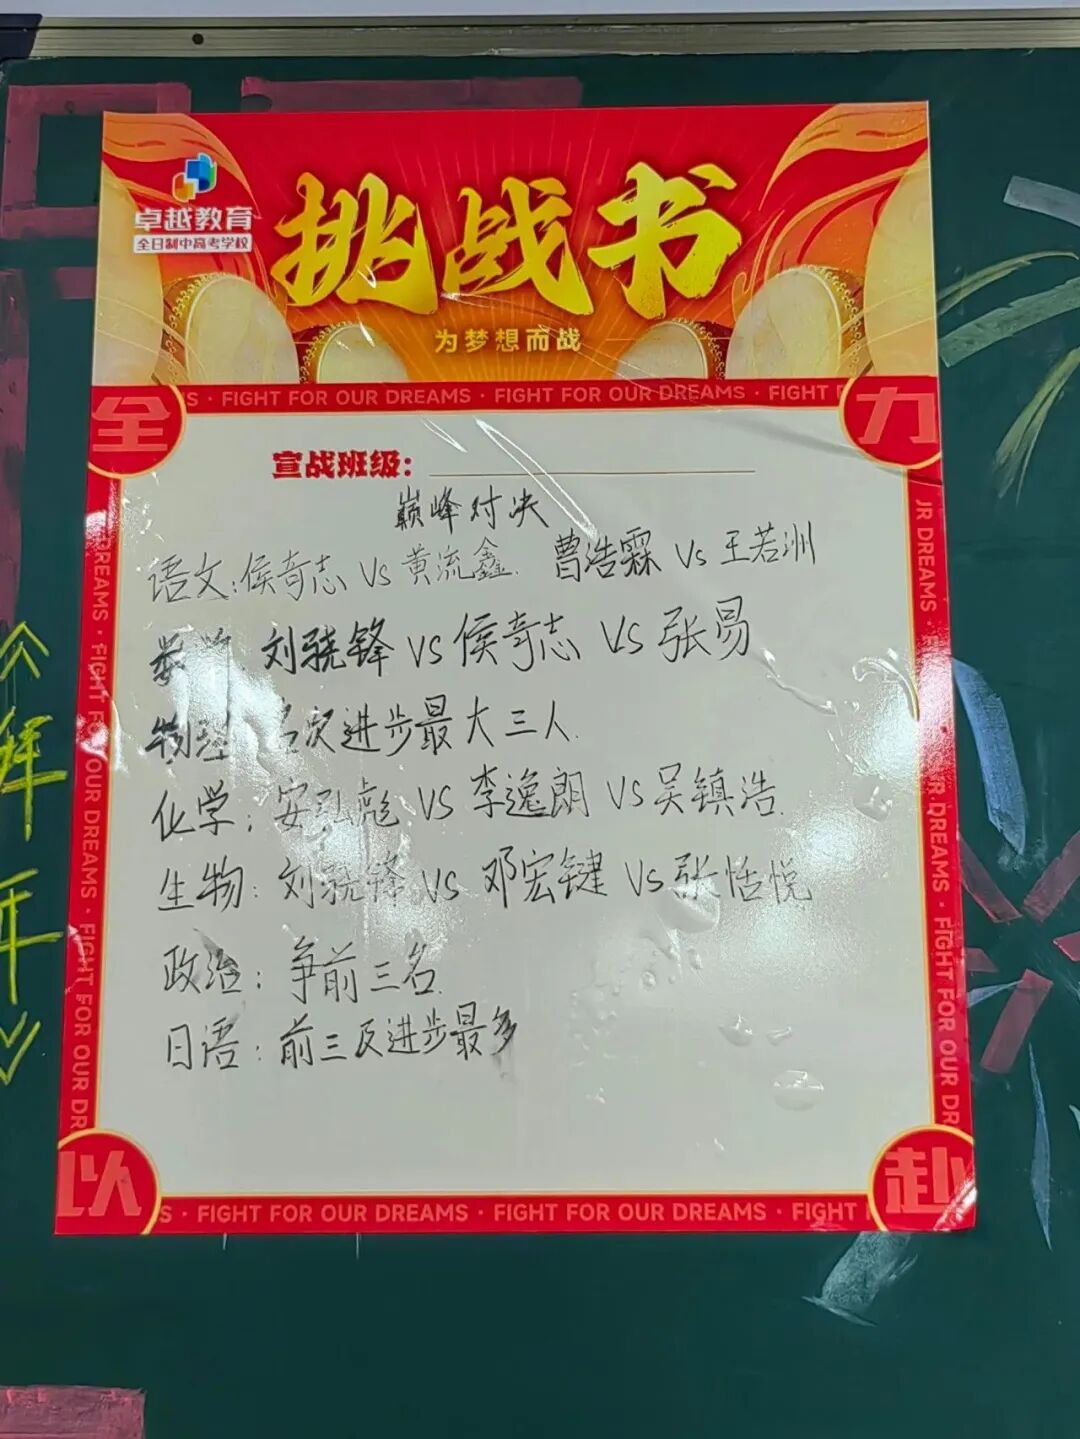 卓越教育
全日制中高考学校
挑战书
为梦想而战
S · FIGHT FOR OUR DREAMS · FIGHT FOR OUR DREAMS · FIGHT F
全
力
宣战班级：
巅峰对决
语文：侯奇志 VS 黄流鑫 曹浩霖 VS 王若洲
刘骁锋 VS 侯奇志 VS 张易
物理 名次进步最大三人.
化学：安弘彪 VS 李逸朗 VS 吴镇浩.
生物：刘骁锋 VS 邓宏键 VS 张恬悦
政治：争前三名.
日语：前三及进步最多
DREAMS · FIGHT FOR OUR DREAMS · FIGHT FOR OUR DR
UR DREAMS
R DREAMS · FIGHT FOR OUR D
以
赴
S · FIGHT FOR OUR DREAMS · FIGHT FOR OUR DREAMS · FIGHT